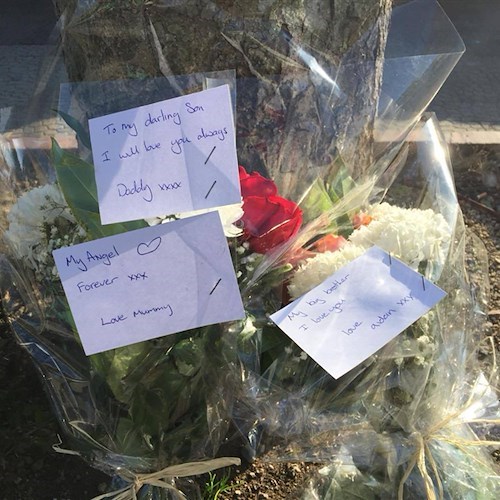 To my darling Son
I will love you always
Daddy xxxx
My Angel ♡
Forever xxx
Love Mummy
My big brother
I love you
love adan xxx